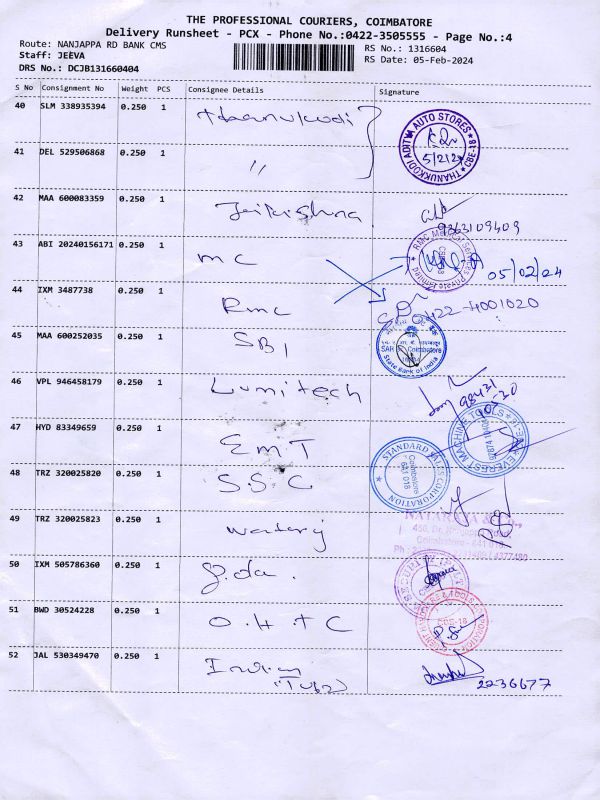 THE PROFESSIONAL COURIERS, COIMBATORE
Delivery Runsheet - PCX - Phone No.:0422-3505555 - Page No.:4
Route: NANJAPPA RD BANK CMS
RS No.: 1316604
Staff: JEEVA
RS Date: 05-Feb-2024
DRS No.: DCJB131660404
S No Consignment No Weight PCS Consignee Details Signature
40 SLM 338935394 0.250 1 Thanukodi
THANUKKODI ADITYA AUTO STORES CBE-18
5/2/24
41 DEL 529506868 0.250 1 "
42 MAA 600083359 0.250 1 Jaikishna
9363109409
43 ABI 20240156171 0.250 1 MC
05/02/24
44 IXM 3487738 0.250 1 RMC
0422-4001020
45 MAA 600252035 0.250 1 SBI
SARC Coimbatore
State Bank of India
46 VPL 946458179 0.250 1 Lumitech
47 HYD 83349659 0.250 1 EMT
EVEREST MACHINE TOOLS
48 TRZ 320025820 0.250 1 S.S.C
STANDARD SALES CORPORATION
Coimbatore
641 018
49 TRZ 320025823 0.250 1
NATARAJA & Co.,
50 IXM 505786360 0.250 1
51 BWD 30524228 0.250 1 O.H.T.C
CBE-18
52 JAL 530349470 0.250 1 Indian
(Tube)
2236677